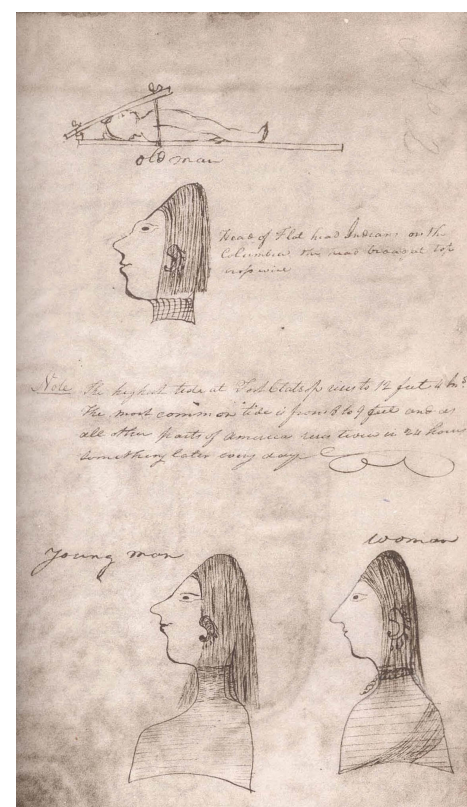 old man
Head of Flat head Indians on the
Columbia the head broad at top
crosswise
Note The highest tide at Fort Clatsop rises to 12 feet 4 Ins.
The most common tide is from 8 to 9 feet and as
all other parts of America rises twice in 24 hours
Something later every day
Young man
woman